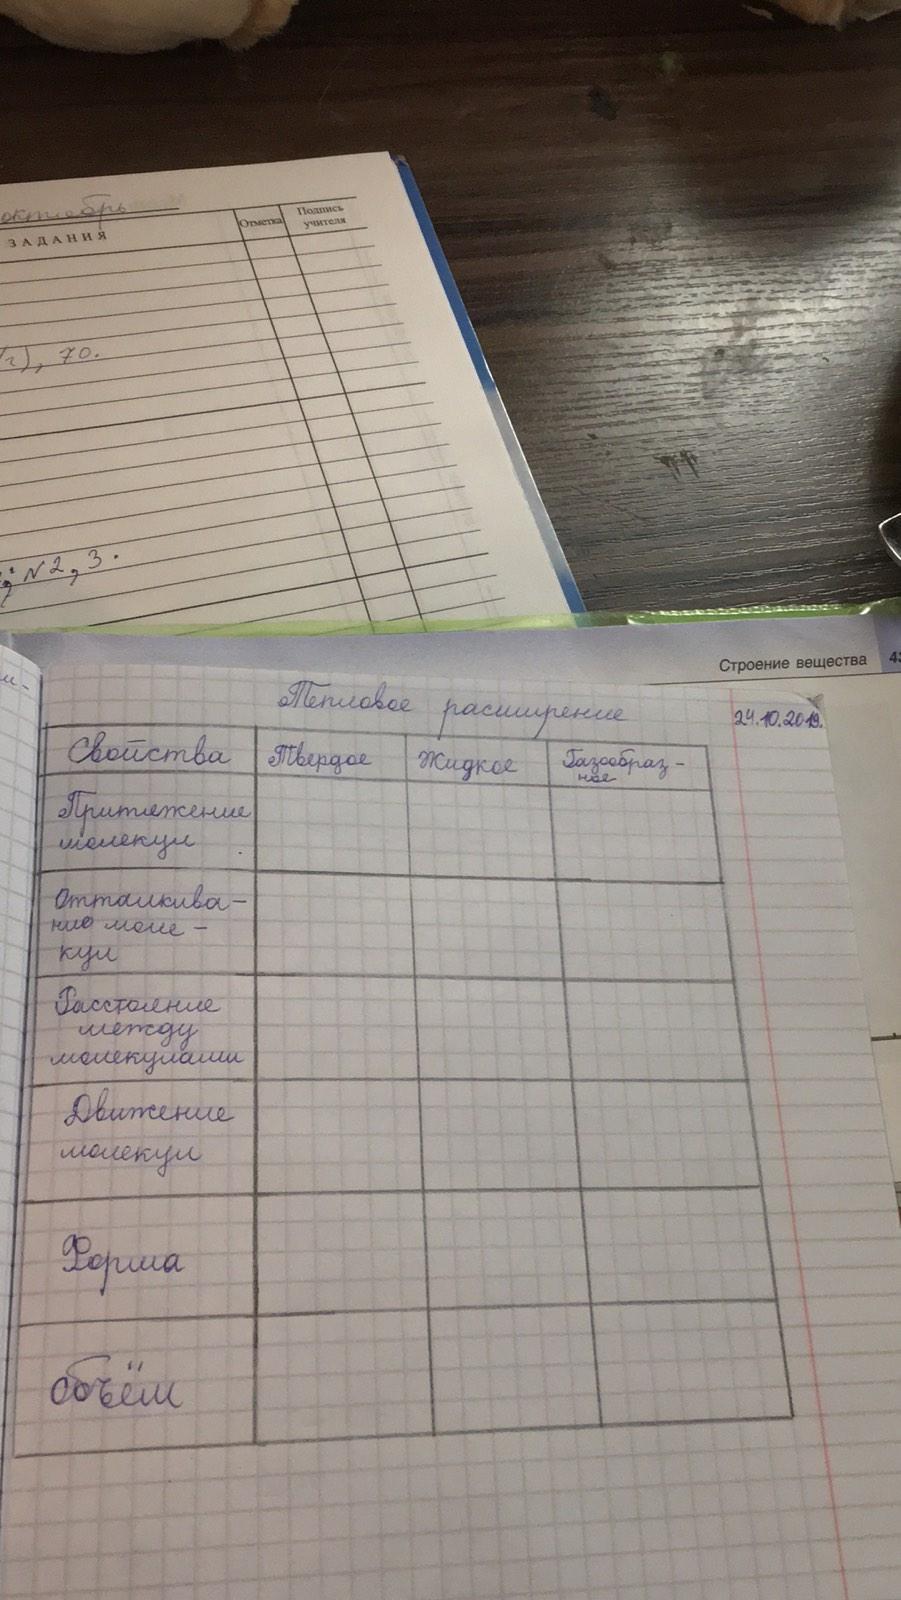 октябрь
ЗАДАНИЯ
Отметка
Подпись
учителя
70.
N2, 3.
Строение вещества
Тепловое расширение
24.10.2019.
Свойства
Твердое
Жидкое
Газообраз-
ное
Притяжение
молекул
Отталкива-
ние моле-
кул
Расстояние
между
молекулами
Движение
молекул
Форма
объём